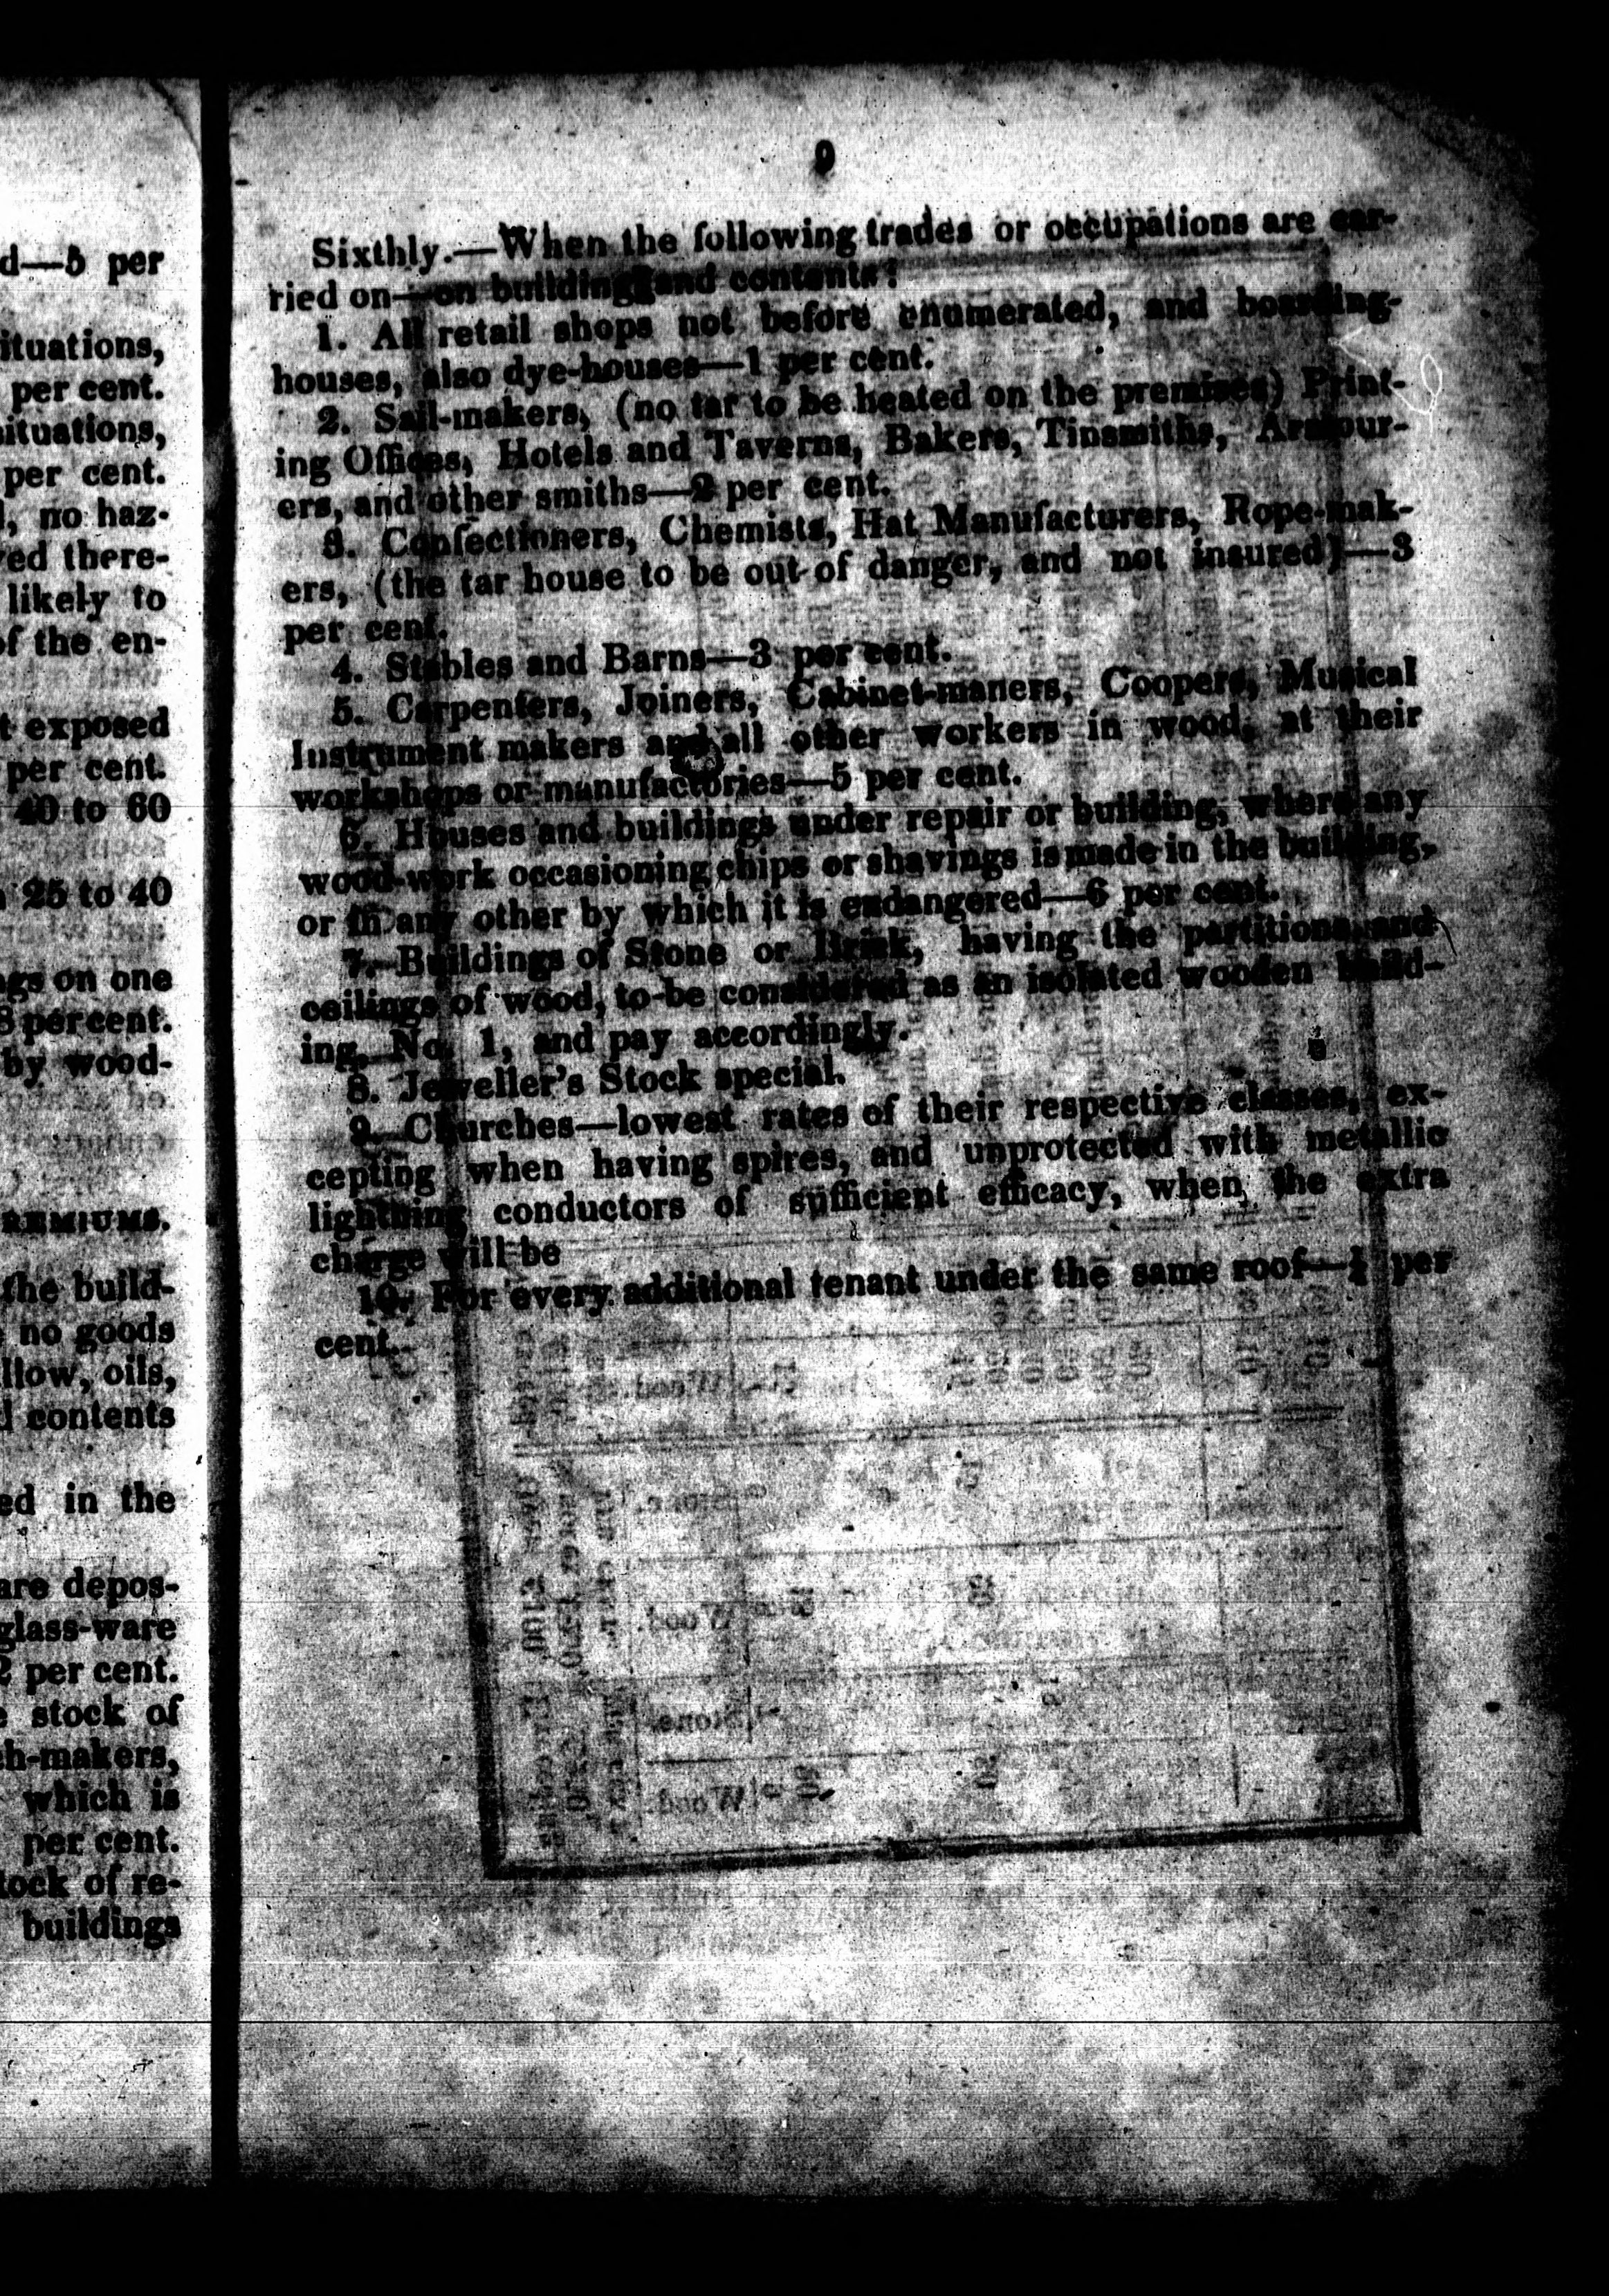 d—5 per
ituations,
per cent.
situations,
per cent.
, no haz-
ed there-
likely to
of the en-
t exposed
per cent.
40 to 60
25 to 40
ngs on one
8 per cent.
by wood-
REMIUMS.
the build-
no goods
llow, oils,
contents
ed in the
are depos-
glass-ware
2 per cent.
stock of
ch-makers,
which is
per cent.
tock of re-
buildings
9
Sixthly.—When the following trades or occupations are car-
ried on—on buildings and contents:
1. All retail shops not before enumerated, and boarding-
houses, also dye-houses—1 per cent.
2. Sail-makers, (no tar to be heated on the premises) Print-
ing Offices, Hotels and Taverns, Bakers, Tinsmiths, Armour-
ers, and other smiths—2 per cent.
3. Confectioners, Chemists, Hat Manufacturers, Rope-mak-
ers, (the tar house to be out of danger, and not insured)—3
per cent.
4. Stables and Barns—3 per cent.
5. Carpenters, Joiners, Cabinet-maners, Coopers, Musical
Instrument makers and all other workers in wood, at their
workshops or manufactories—5 per cent.
6. Houses and buildings under repair or building, where any
wood-work occasioning chips or shavings is made in the building,
or in any other by which it is endangered—6 per cent.
7. Buildings of Stone or Brick, having the partitions and
ceilings of wood, to be considered as an isolated wooden build-
ing, No. 1, and pay accordingly.
8. Jeweller's Stock special.
9. Churches—lowest rates of their respective classes, ex-
cepting when having spires, and unprotected with metallic
lightning conductors of sufficient efficacy, when the extra
charge will be
10. For every additional tenant under the same roof—½ per
cent.